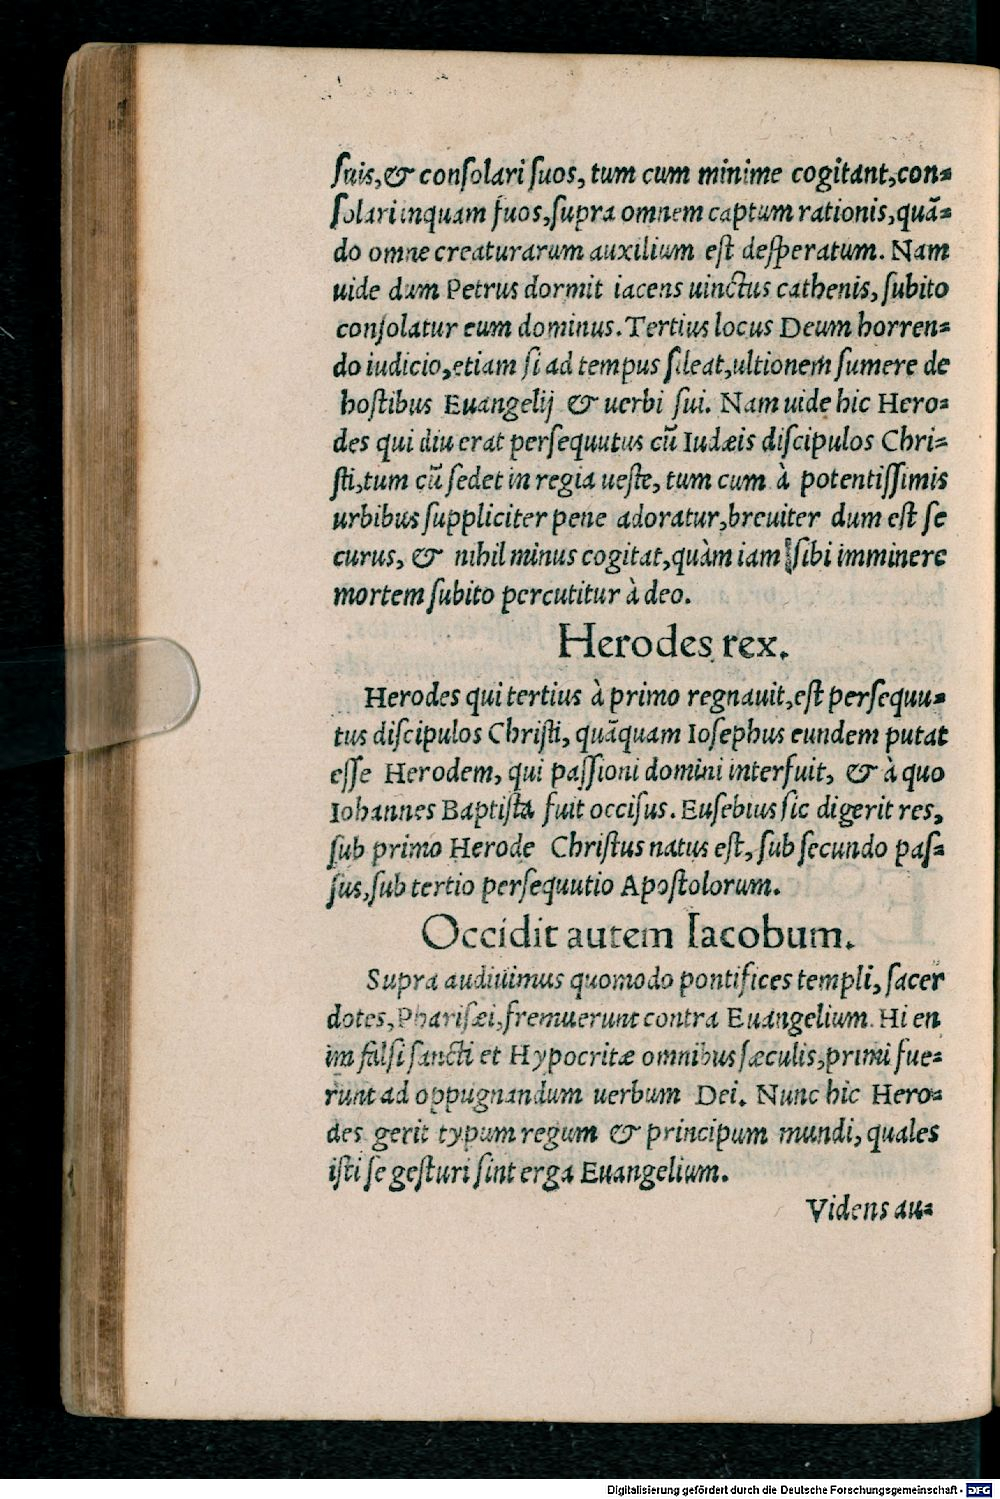 ſuis,& conſolari ſuos, tum cum minime cogitant,con⸗
ſolari inquam ſuos,ſupra omnem captum rationis,quā⸗
do omne creaturarum auxilium eſt deſperatum. Nam
uide dum Petrus dormit iacens uinctus cathenis, ſubito
conſolatur eum dominus. Tertius locus Deum horren⸗
do iudicio,etiam ſi ad tempus ſileat,ultionem ſumere de
hoſtibus Euangelij & uerbi ſui. Nam uide hic Hero⸗
des qui diu erat perſequutus cū Iudæis diſcipulos Chri⸗
ſti,tum cū ſedet in regia ueſte, tum cum à potentiſſimis
urbibus ſuppliciter pene adoratur,breuiter dum eſt ſe
curus, & nihil minus cogitat,quàm iam ſibi imminere
mortem ſubito percutitur à deo.
Herodes rex.
Herodes qui tertius à primo regnauit,eſt perſequu⸗
tus diſcipulos Chriſti, quāquam Ioſephus eundem putat
eſſe Herodem, qui paſſioni domini interfuit, & à quo
Iohannes Baptiſta fuit occiſus. Euſebius ſic digerit res,
ſub primo Herode Chriſtus natus eſt, ſub ſecundo paſ⸗
ſus,ſub tertio perſequutio Apoſtolorum.
Occidit autem Iacobum.
Supra audiuimus quomodo pontifices templi, ſacer
dotes,Phariſæi,fremuerunt contra Euangelium. Hi en
im falſi ſancti et Hypocritæ omnibus ſæculis,primi fue⸗
runt ad oppugnandum uerbum Dei. Nunc hic Hero⸗
des gerit typum regum & principum mundi, quales
iſti ſe geſturi ſint erga Euangelium.
Videns au⸗
Digitalisierung gefördert durch die Deutsche Forschungsgemeinschaft - DFG